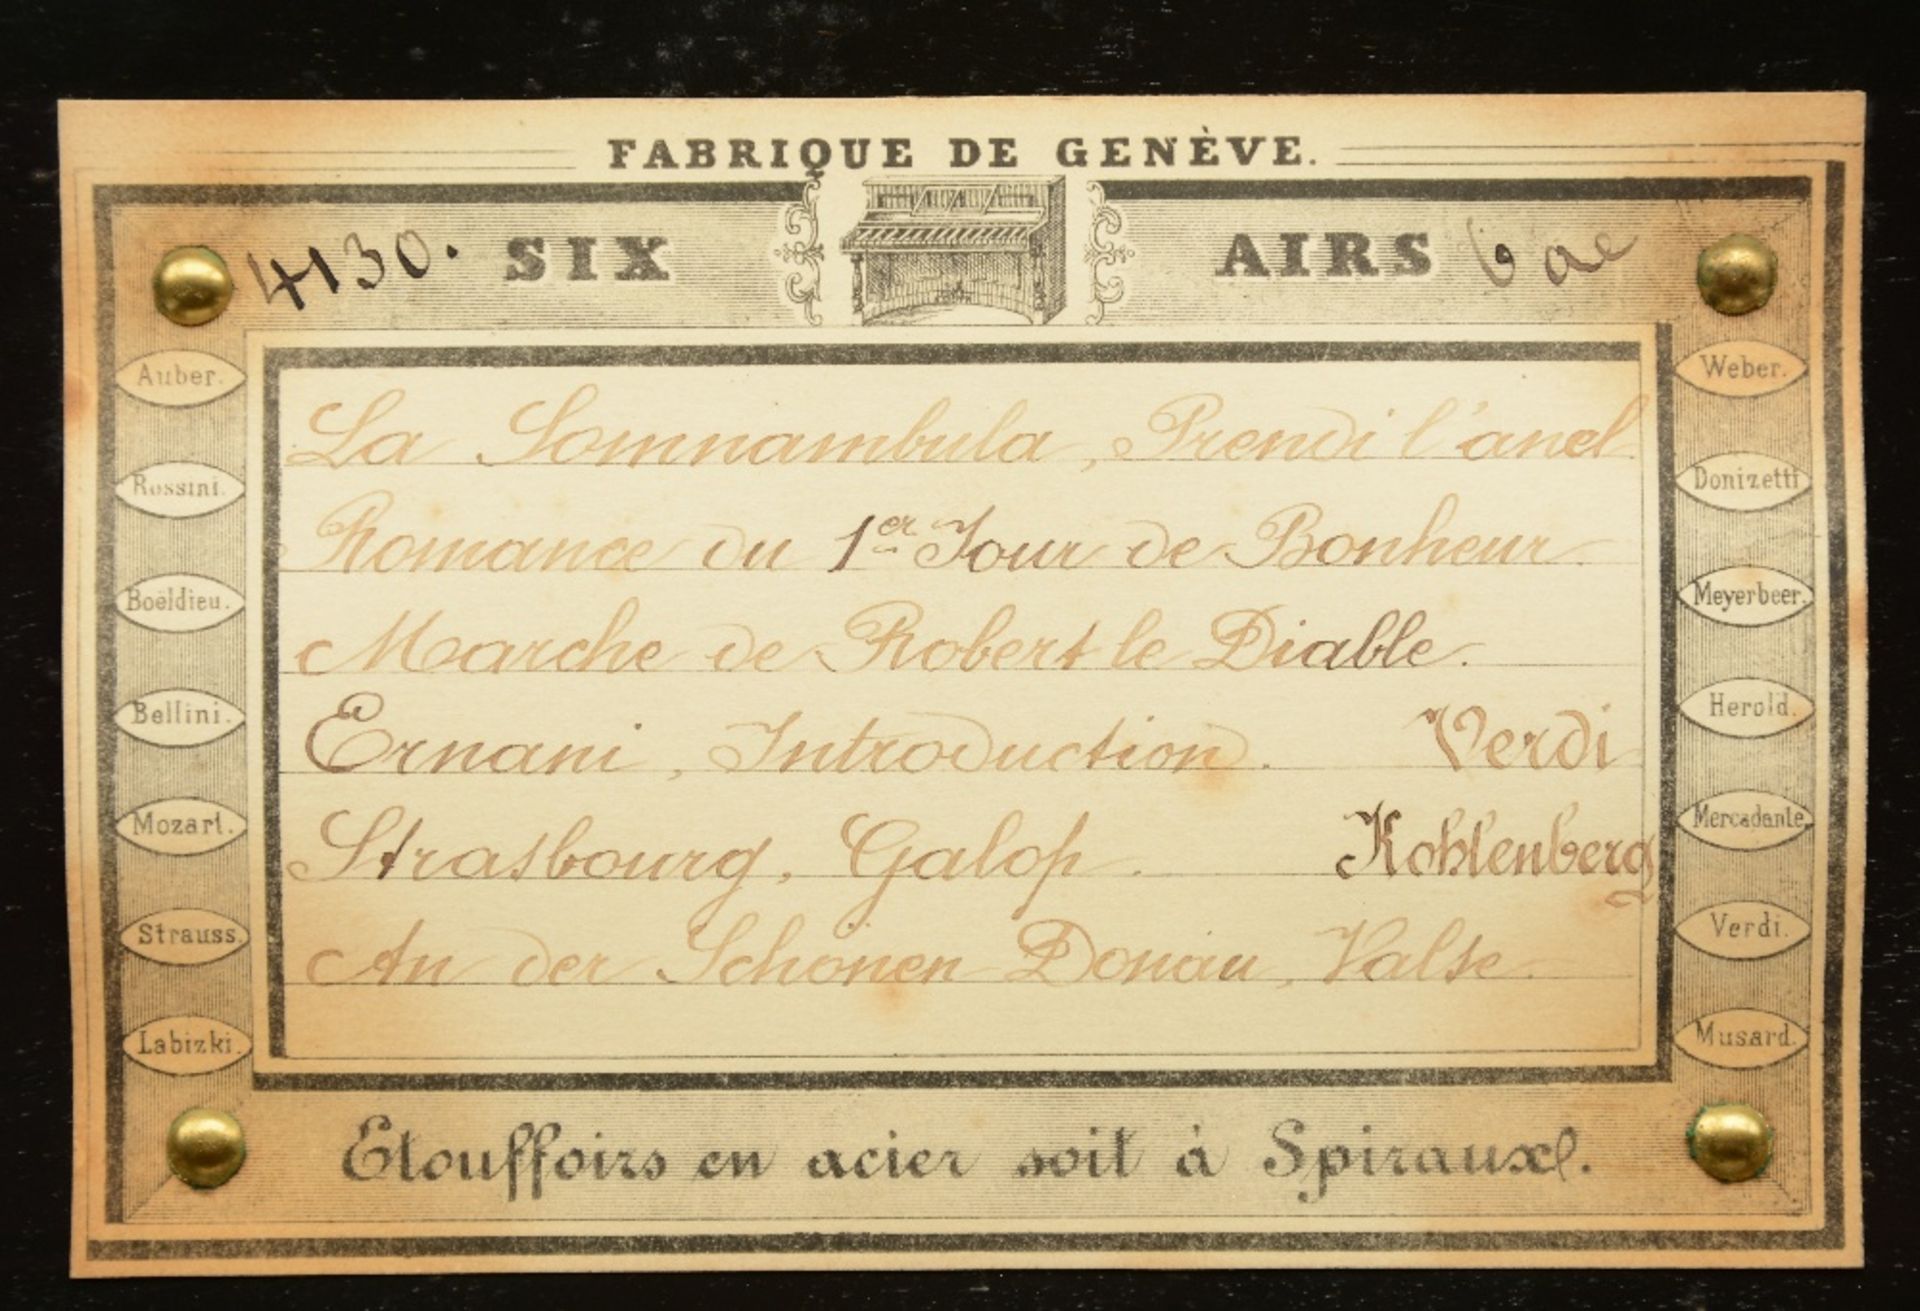 FABRIQUE DE GENÈVE.
4130. SIX AIRS 6 ae
Auber. Weber.
La Somnambula, Prendi l'anel
Rossini. Donizetti
Romance du 1er Jour de Bonheur.
Boëldieu. Meyerbeer.
Marche de Robert le Diable.
Bellini. Herold.
Ernani, Introduction. Verdi
Mozart. Mercadante.
Strasbourg, Galop. Kohlenberg
Strauss. Verdi.
An der Schönen Donau, Valse.
Labizki. Musard.
Etouffoirs en acier soit à Spiraux.